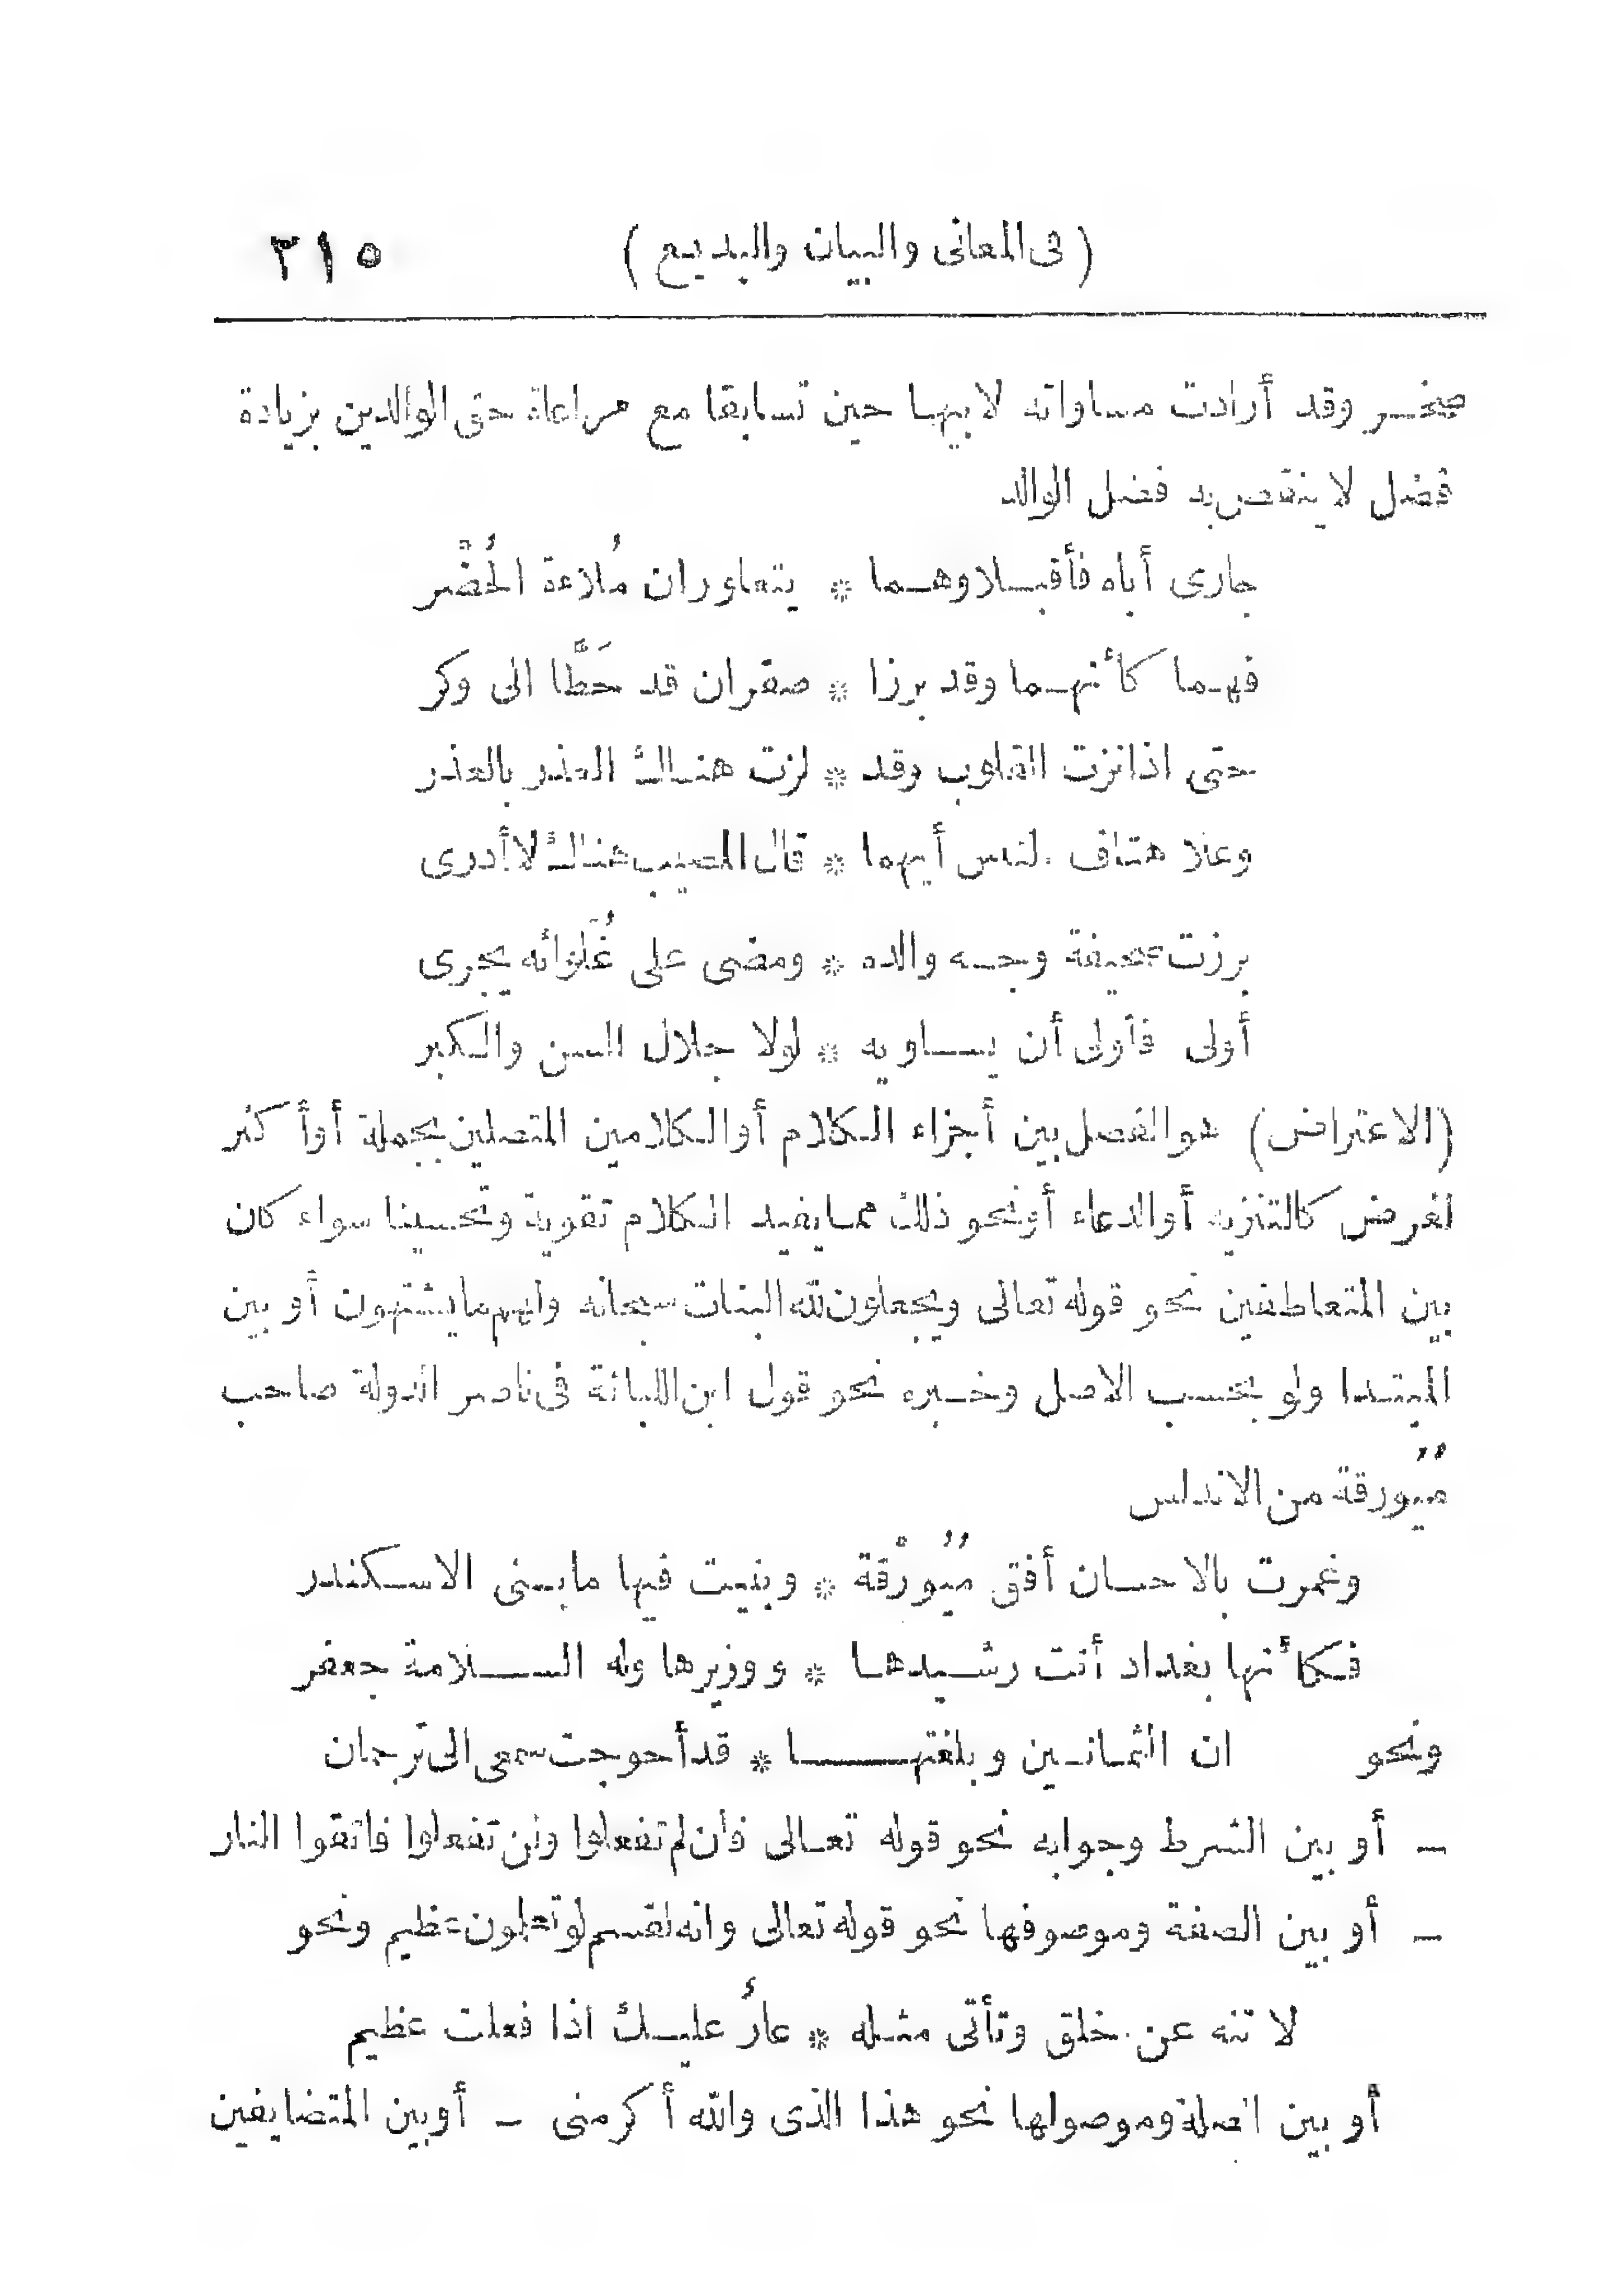 (فى المعانى والبيان والبديع) ٢١٥
صخر وقد أرادت مساواته لابيها حين تسابقا مع مراعاة حق الوالدين بزيادة
فضل لا ينقص به فضل الوالد
جارى أباه فأقبلا وهما * يتعاوران مُلاءة الحُضْر
فهما كأنهما وقد برزا * صقران قد حَطَّا الى وكر
حتى اذا نزت القلوب وقد * لزت هناك العذر بالعذر
وعلا هتاف الناس أيهما * قال المجيب هناك لا أدرى
برزت صحيفة وجه والده * ومضى على غُلَوائه يجرى
أولى فأولى أن يساويه * لولا جلال السن والكبر
(الاعتراض) هو الفصل بين أجزاء الكلام أو الكلامين المتصلين بجملة أو أكثر
لغرض كالتنزيه أو الدعاء أو نحو ذلك مما يفيد الكلام تقوية وتحسينا سواء كان
بين المتعاطفين نحو قوله تعالى ويجعلون لله البنات سبحانه ولهم ما يشتهون أو بين
المبتدا ولو بحسب الاصل وخبره نحو قول ابن اللبانة فى ناصر الدولة صاحب
مُيُورقة من الاندلس
وغمرت بالاحسان أفق مُيُورْقة * وبنيت فيها ما بنى الاسكندر
فكأنها بغداد أنت رشيدها * ووزيرها وله السلامة جعفر
ونحو ان الثمانين وبلغتها * قد أحوجت سمعى الى ترجمان
ـ أو بين الشرط وجوابه نحو قوله تعالى فأن لم تفعلوا ولن تفعلوا فاتقوا النار
ـ أو بين الصفة وموصوفها نحو قوله تعالى وانه لقسم لو تعلمون عظيم ونحو
لا تنه عن خلق وتأتى مثله * عارٌ عليك اذا فعلت عظيم
أو بين الصلة وموصولها نحو هذا الذى والله أكرمنى ـ أو بين المتضايفين